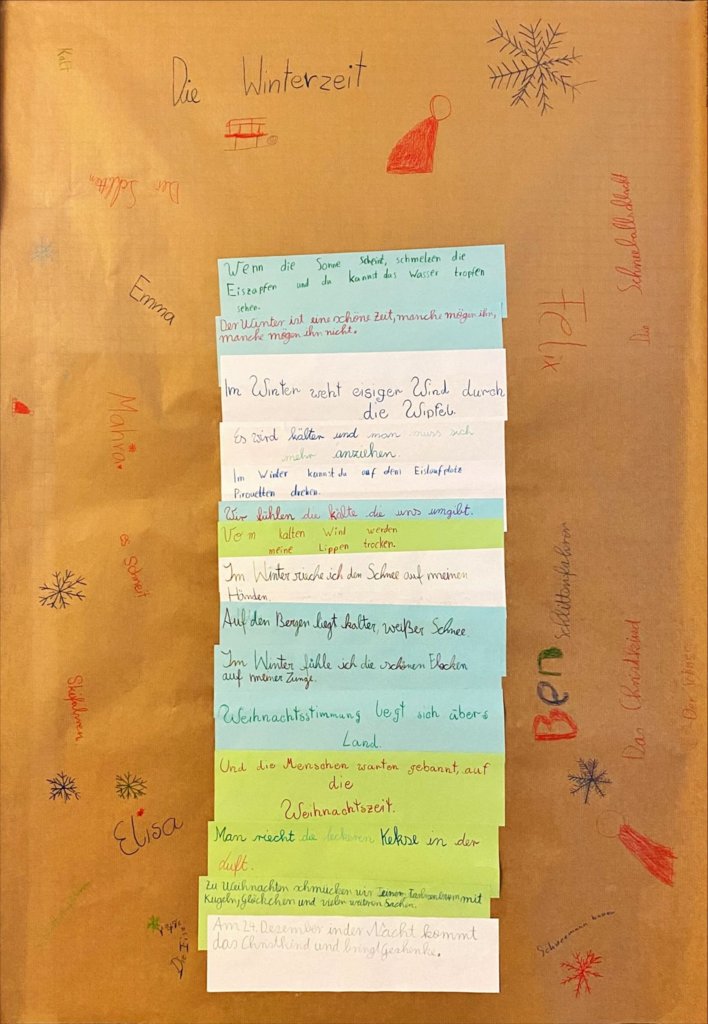 Kalt
Die Winterzeit
Der Schlitten
Die Schneeballschlacht
Emma
Felix
Mahira
es Schneit
Skifahren
Elisa
Wenn die Sonne scheint, schmelzen die
Eiszapfen und du kannst das Wasser tropfen
sehen.
Der Winter ist eine schöne Zeit, manche mögen ihn,
manche mögen ihn nicht.
Im Winter weht eisiger Wind durch
die Wipfel.
Es wird kälter und man muss sich
mehr anziehen.
Im Winter kannst du auf dem Eislaufplatz
Pirouetten drehen.
Wir fühlen die kälte die uns umgibt.
Vom kalten Wind werden
meine Lippen trocken.
Im Winter rieche ich den Schnee auf meinen
Händen.
Auf den Bergen liegt kalter, weißer Schnee
Im Winter fühle ich die schönen Flocken
auf meiner Zunge.
Weihnachtsstimmung legt sich über's
Land.
Und die Menschen warten gebannt, auf
die
Weihnachtszeit.
Man riecht die leckeren Kekse in der
Luft.
Zu Weihnachten schmücken wir einen Tannenbaum mit
Kugeln, Glöckchen und vielen weiteren Sachen.
Am 24. Desember in der Nacht kommt
das Christkind und bringt Geschenke.
Schlittenfahren
Ben
Das Christkind
Der Schnee
Schneemann bauen